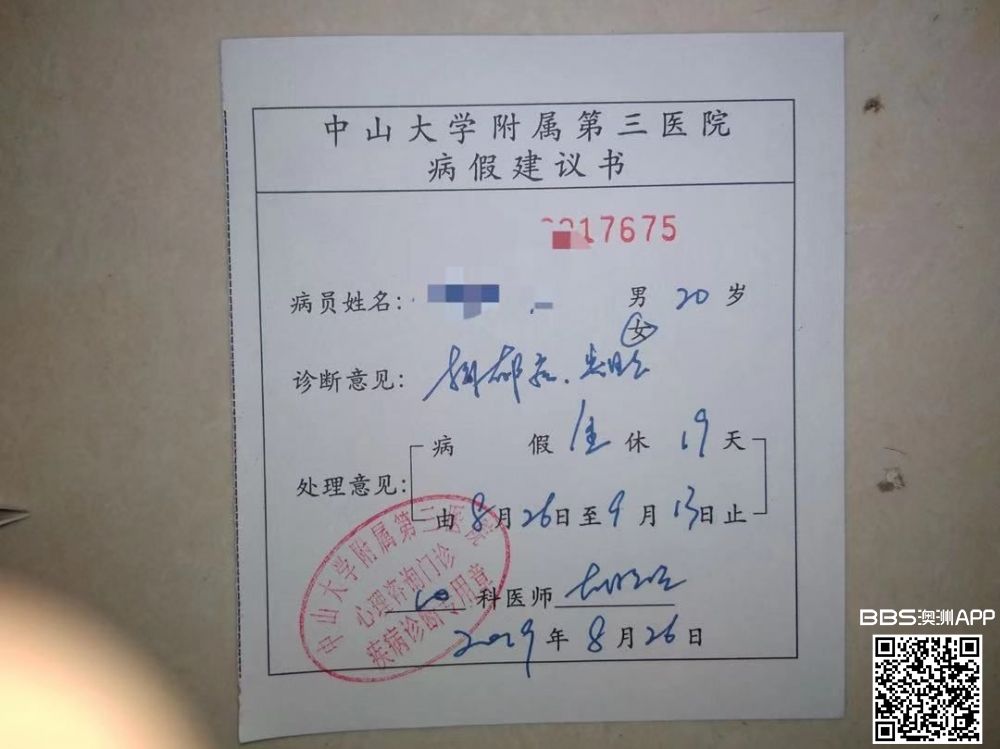 中山大学附属第三医院
病假建议书
17675
病员姓名: 男 20 岁
女
诊断意见: 抑郁症.
病 假 全 休 19 天
处理意见:
由 8 月 26 日至 9 月 13 日止
中山大学附属第三医院
心理咨询门诊
疾病诊断专用章
心 科医师
2019 年 8 月 26 日
BBS澳洲APP